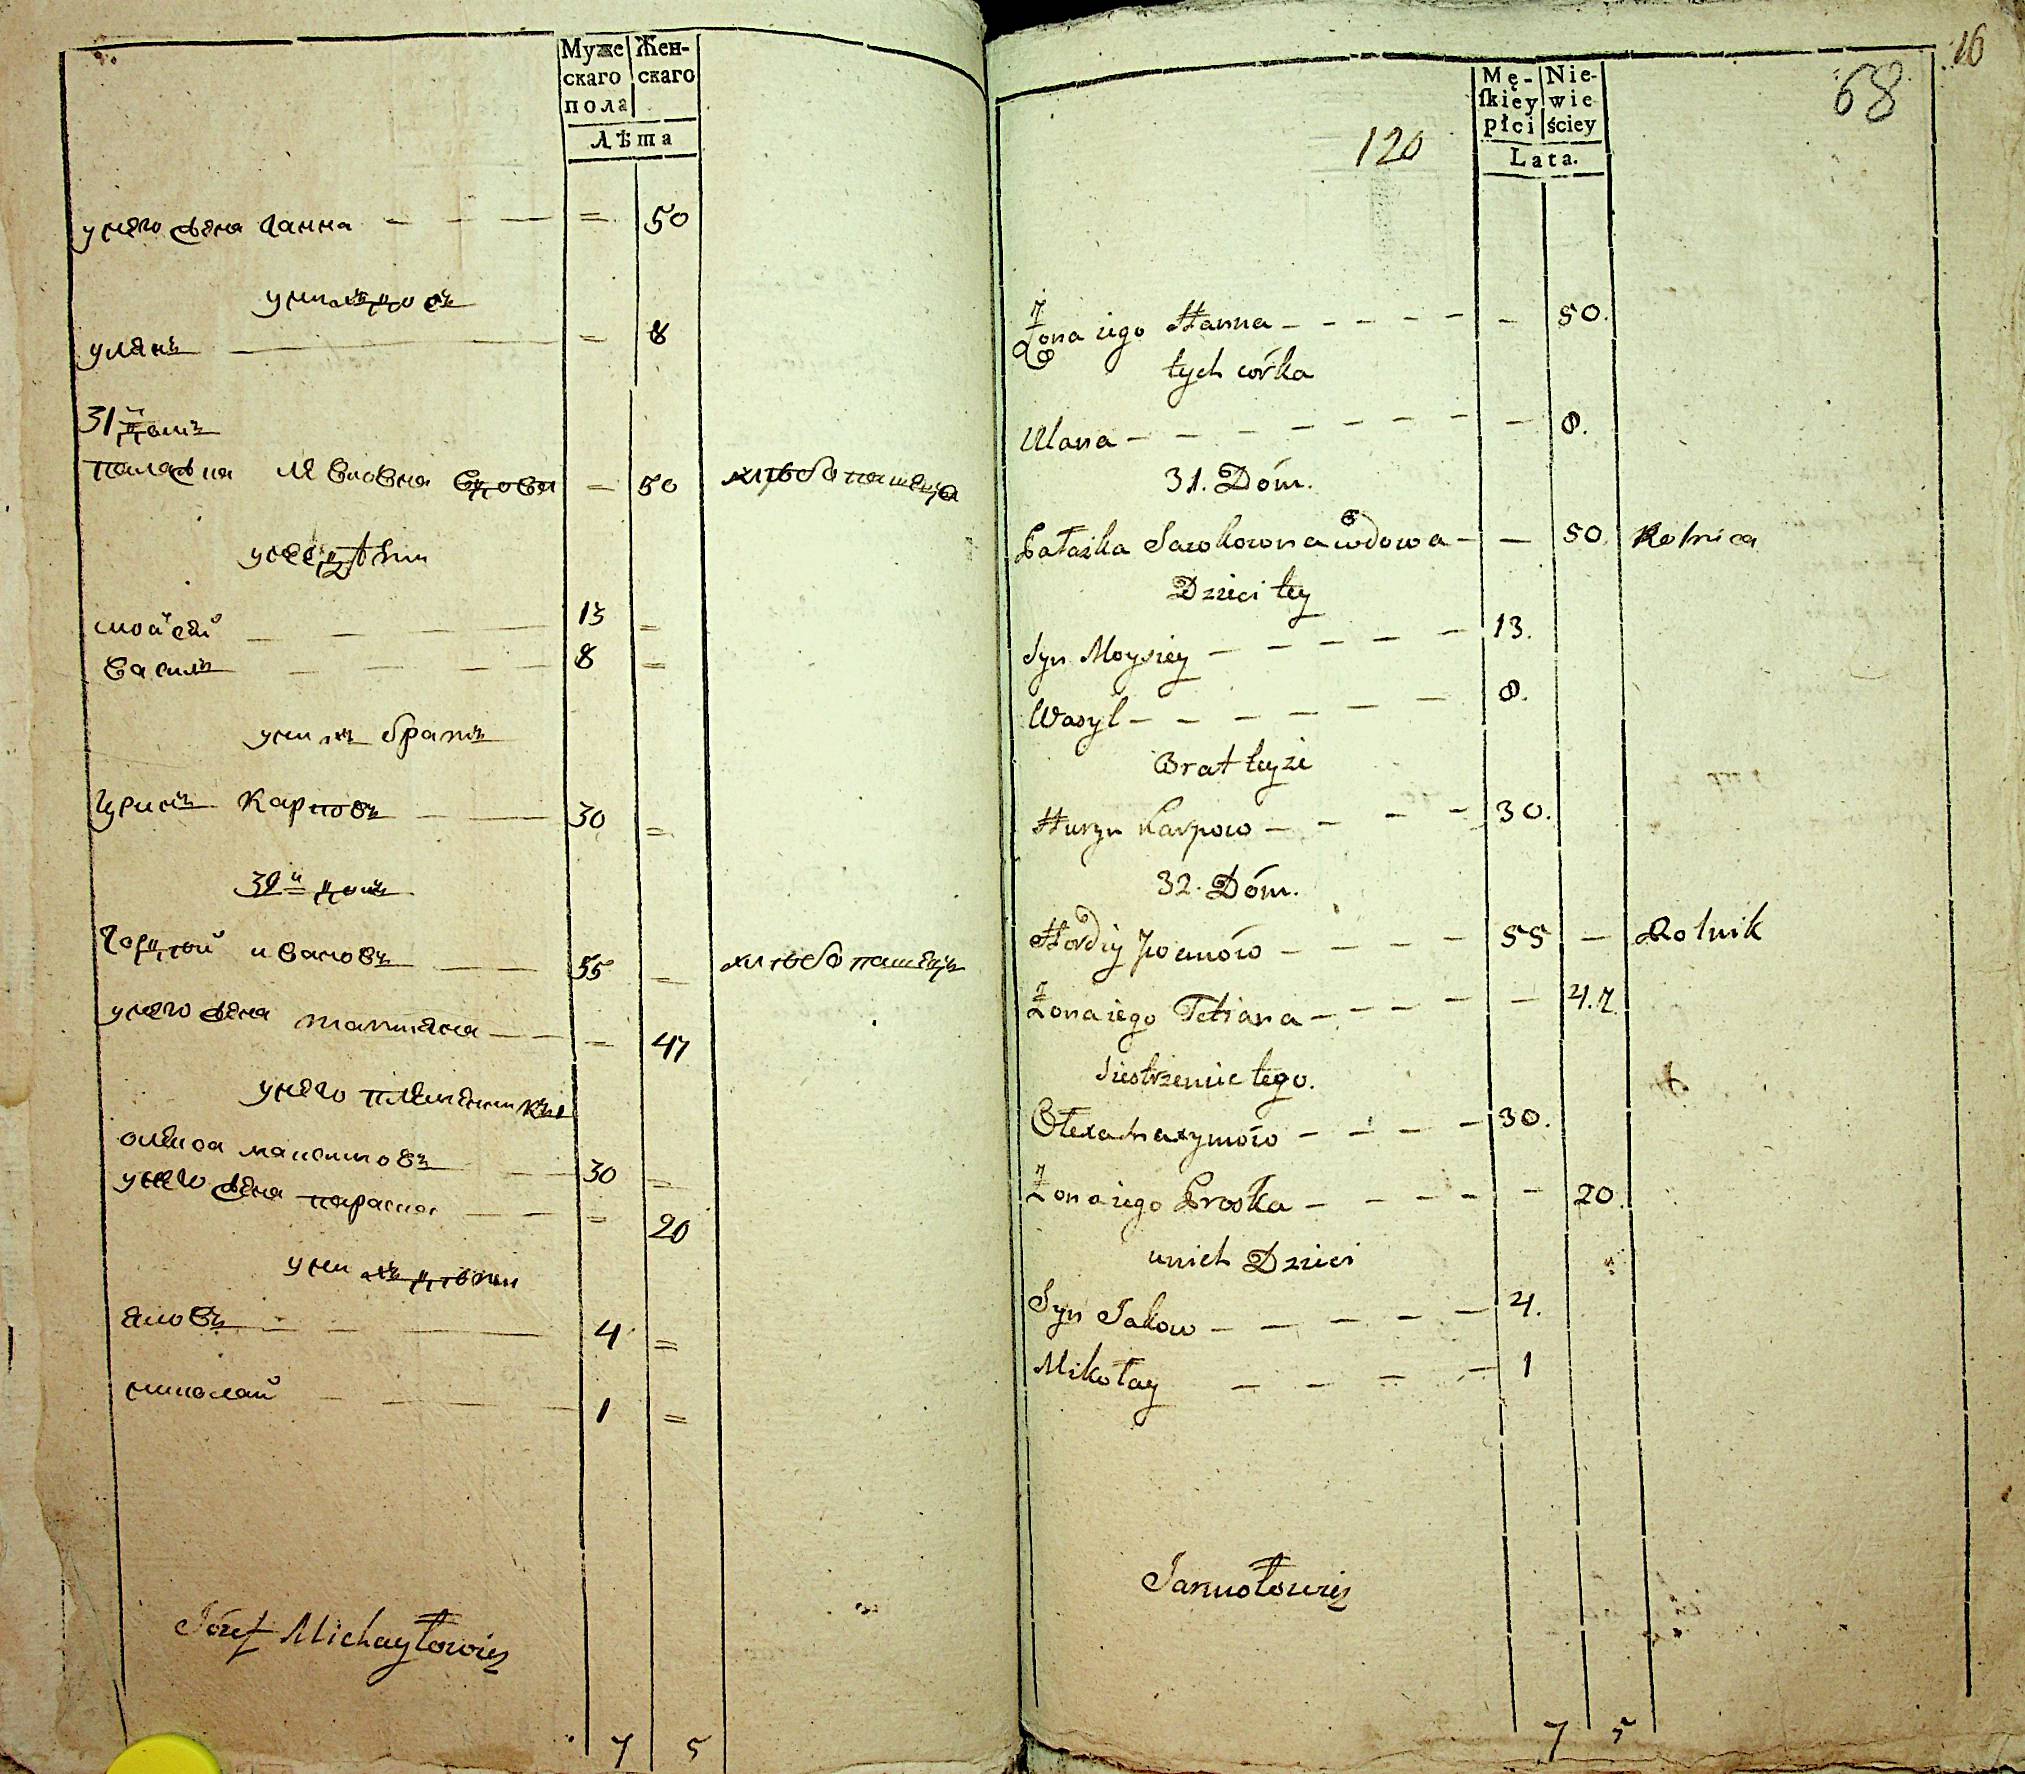 Муже Жен-
скаго скаго
пола
Лѣта
у него жена Ганна - - - = 50
у них дочь
Улян = 8
31й дом
Палажка Яковковна вдова = 50 хлѣбопашец
у нее дѣти
Мойсей 13 =
Василь 8 =
у них брат
Гурин Карпов 30 =
32й дом
Гордій Иванов 55 = хлѣбопашец
у него жена Татияна = 47
у него племенники
Олекса Максимов 30 =
у него жена Параска = 20
у них дѣти
Яков 4 =
Николай 1 =
Józef Michayłowicz
7 5
16
68
120
Mę- Nie-
ſkiey wie
płci ściey
Lata.
Żona iego Hanna - - - - - - 50.
tych córka
Ulana - - - - - - - - 8.
31. Dóm.
Pałażka Jawkowna wdowa - - 50 Rolnica
Dzieci tey
Syn Moysiey - - - - - 13.
Wasyl - - - - - - 8.
Brat teyże
Huryn Karpow - - - - 30.
32. Dóm.
Hordiy Jwanów - - - - 55 - Rolnik
Żona iego Tetiana - - - - - 47.
Siestrzenie tego.
Ołexa Maxymów - - - - 30.
Żona iego Proska - - - - - 20.
u nich Dzieci
Syn Jakow - - - - - 4.
Mikołay - - - - 1
Jarmołowicz
7 5